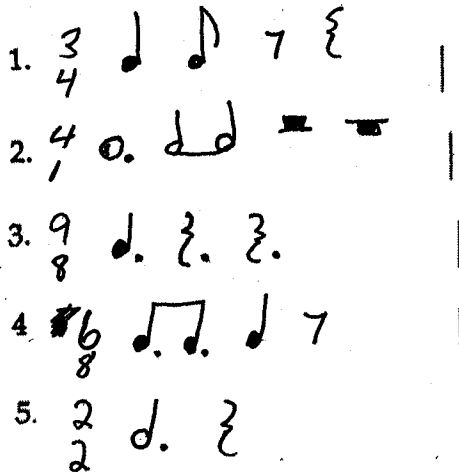 1. 3
4
2. 4
1
3. 9
8
4 6
8
5. 2
2